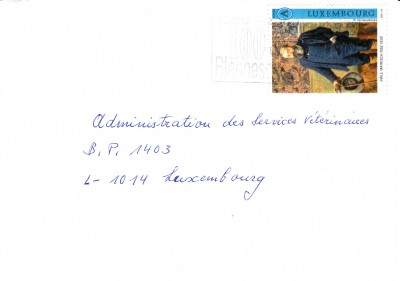 LUXEMBOURG
100
Administration des Services Vétérinaires
B.P. 1403
L-1014 Luxembourg